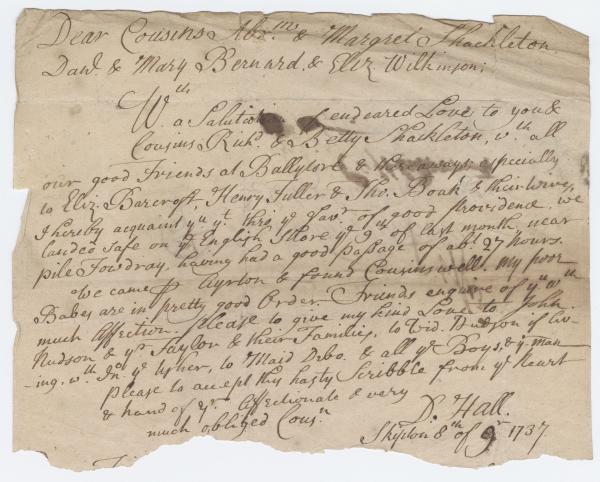 Dear Cousins Abr.m & Margret Shackleton,
Danl. & Mary Bernard, & Eliz Wilkinson;
Wth a Salutation of endeared Love to you &
Cousins Richd. & Betty Shackleton, wth all
our good Friends at Ballytore & thereaways; especially
to Eliz. Barcroft, Henry Fuller & Tho. Boak & their wives,
I hereby acquaint yu yt. thro' ye Favr. of good providence, we
landed safe on ye English Shore ye 9th of last month, near
pile Fowdray, having had a good passage of abt. 27 hours.
We came Ayrton & found Cousins well. My poor
Babes are in pretty good Order. Friends enquire of yu wth
much Affection. Please to give my kind Love to John
Hudson & Taylor & their Families, to Hudson if liv-
ing, wth Jn. ye Usher, to Maid Debo. & all ye Boys, &
Please to accept this hasty Scribble from ye Heart
& hand of yr. Affectionate & very
much obliged Cousn
D. Hall.
Skipton 8th of 1737.